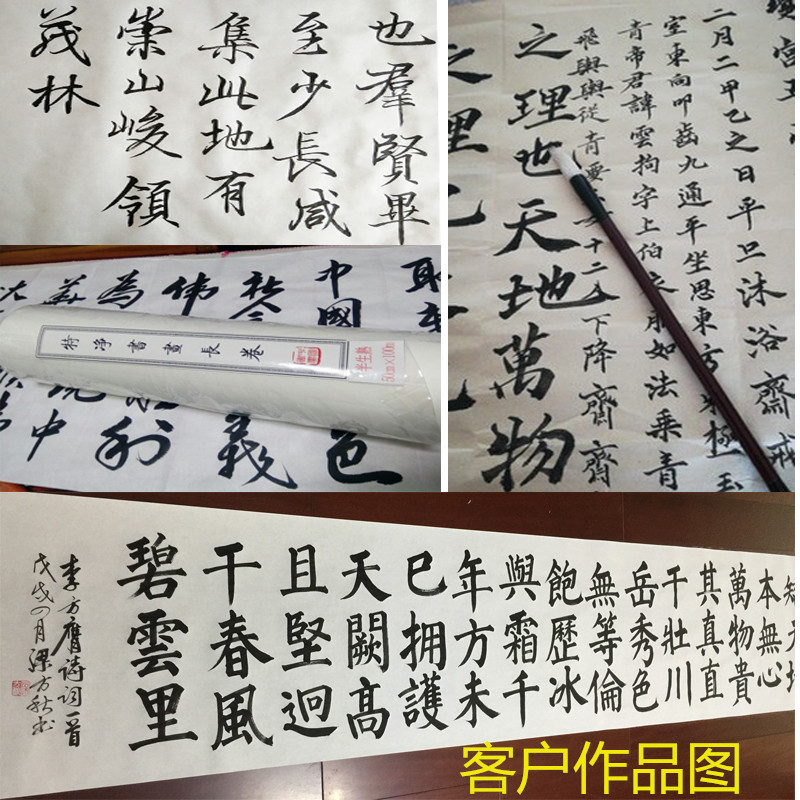 也羣賢畢
至少長咸
集此地有
崇山峻領
茂林
二月二甲乙之日平旦沐浴齋戒
室東向叩齒九通平坐思東方
青帝君諱雲拘字上伯衣服如法乘青
下降齋齋
之理也天地萬物
之理
中國
偉
為
義
特净書畫長卷
半生熟
50cm×100m
本無心
萬物貴
其真直
千壯川
岳秀色
無等倫
飽歷冰
與霜千
年方未
已拥護
天闕高
且堅迥
干春風
碧雲里
李方膺诗词一首
戊戌四月梁方秋书
客户作品图